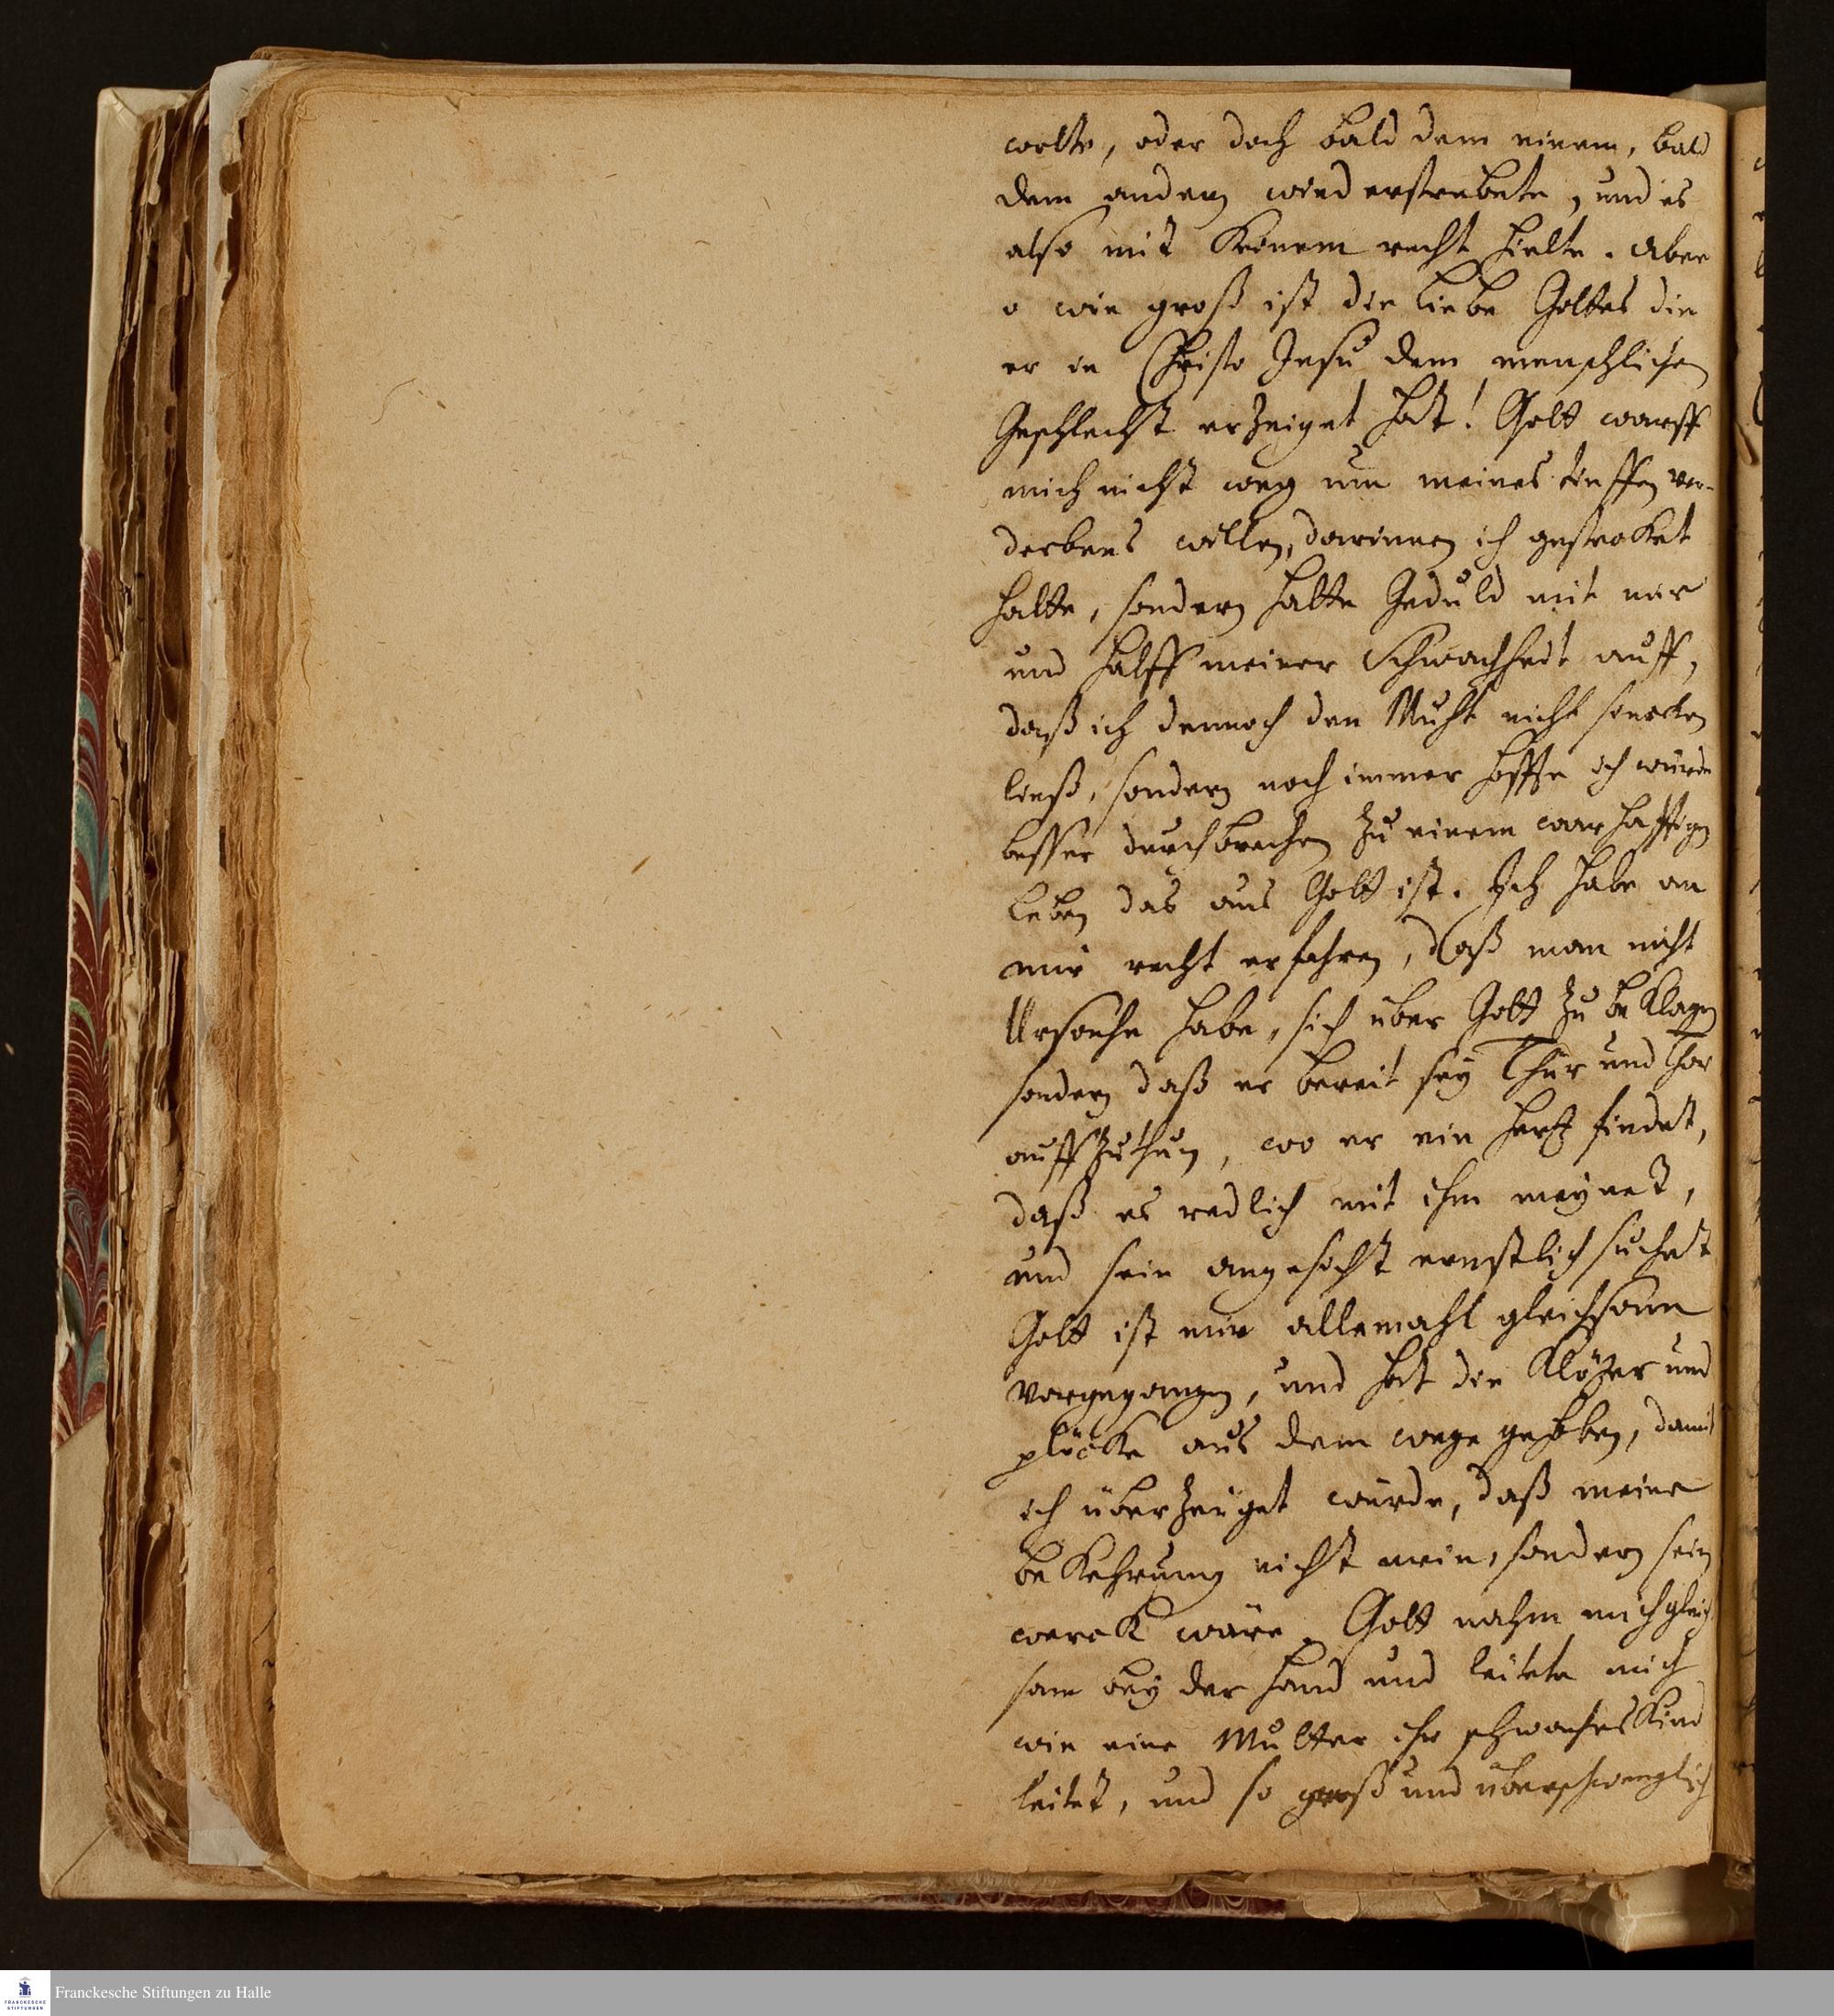 wolte, oder doch bald dem einem, bald
dem andern wiederstrebete, und es
also mit Keinem recht hielte. Aber
o wie groß ist die Liebe Gottes die
er in Christo Jesu dem menschlichen
Geschlecht erzeiget hat! Gott warff
mich nicht weg um meines tieffen ver-
derbens willen, darinnen ich gestecket
hatte, sondern hatte Gedult mit mir
und halff meiner Schwachheit auff,
daß ich dennoch den Muht nicht sincken
ließ, sondern noch immer hoffte ich würde
besser durchbrechen zu einem warhafftigen
Leben das aus Gott ist. Ich habe an
mir recht erfahren, daß man nicht
Ursache habe, sich über Gott zu beklagen
sondern daß er bereit sey Thür und Thor
auffzuthun, wo er ein Hertz findet,
daß es redlich mit ihm meynet,
und sein angesicht ernstlich suchet
Gott ist mir allemahl gleichsam
vorgegangen, und hat die Klötzer und
plöcke aus dem wege gehoben, damit
ich überzeuget würde, daß meine
beKehrung nicht mein, sondern sein
werck wäre. Gott nahm mich gleich
sam bey der Hand und leitete mich
wie eine Mutter ihr schwaches Kind
leitet, und so groß und überschwenglich
Franckesche Stiftungen zu Halle
FRANCKESCHE
STIFTUNGEN